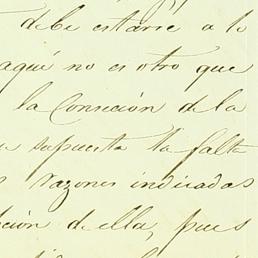 debe estarse a lo
aquí no es otro que
la Conneción de la
supuesta la falta
razones indicadas
ción de ella, pues